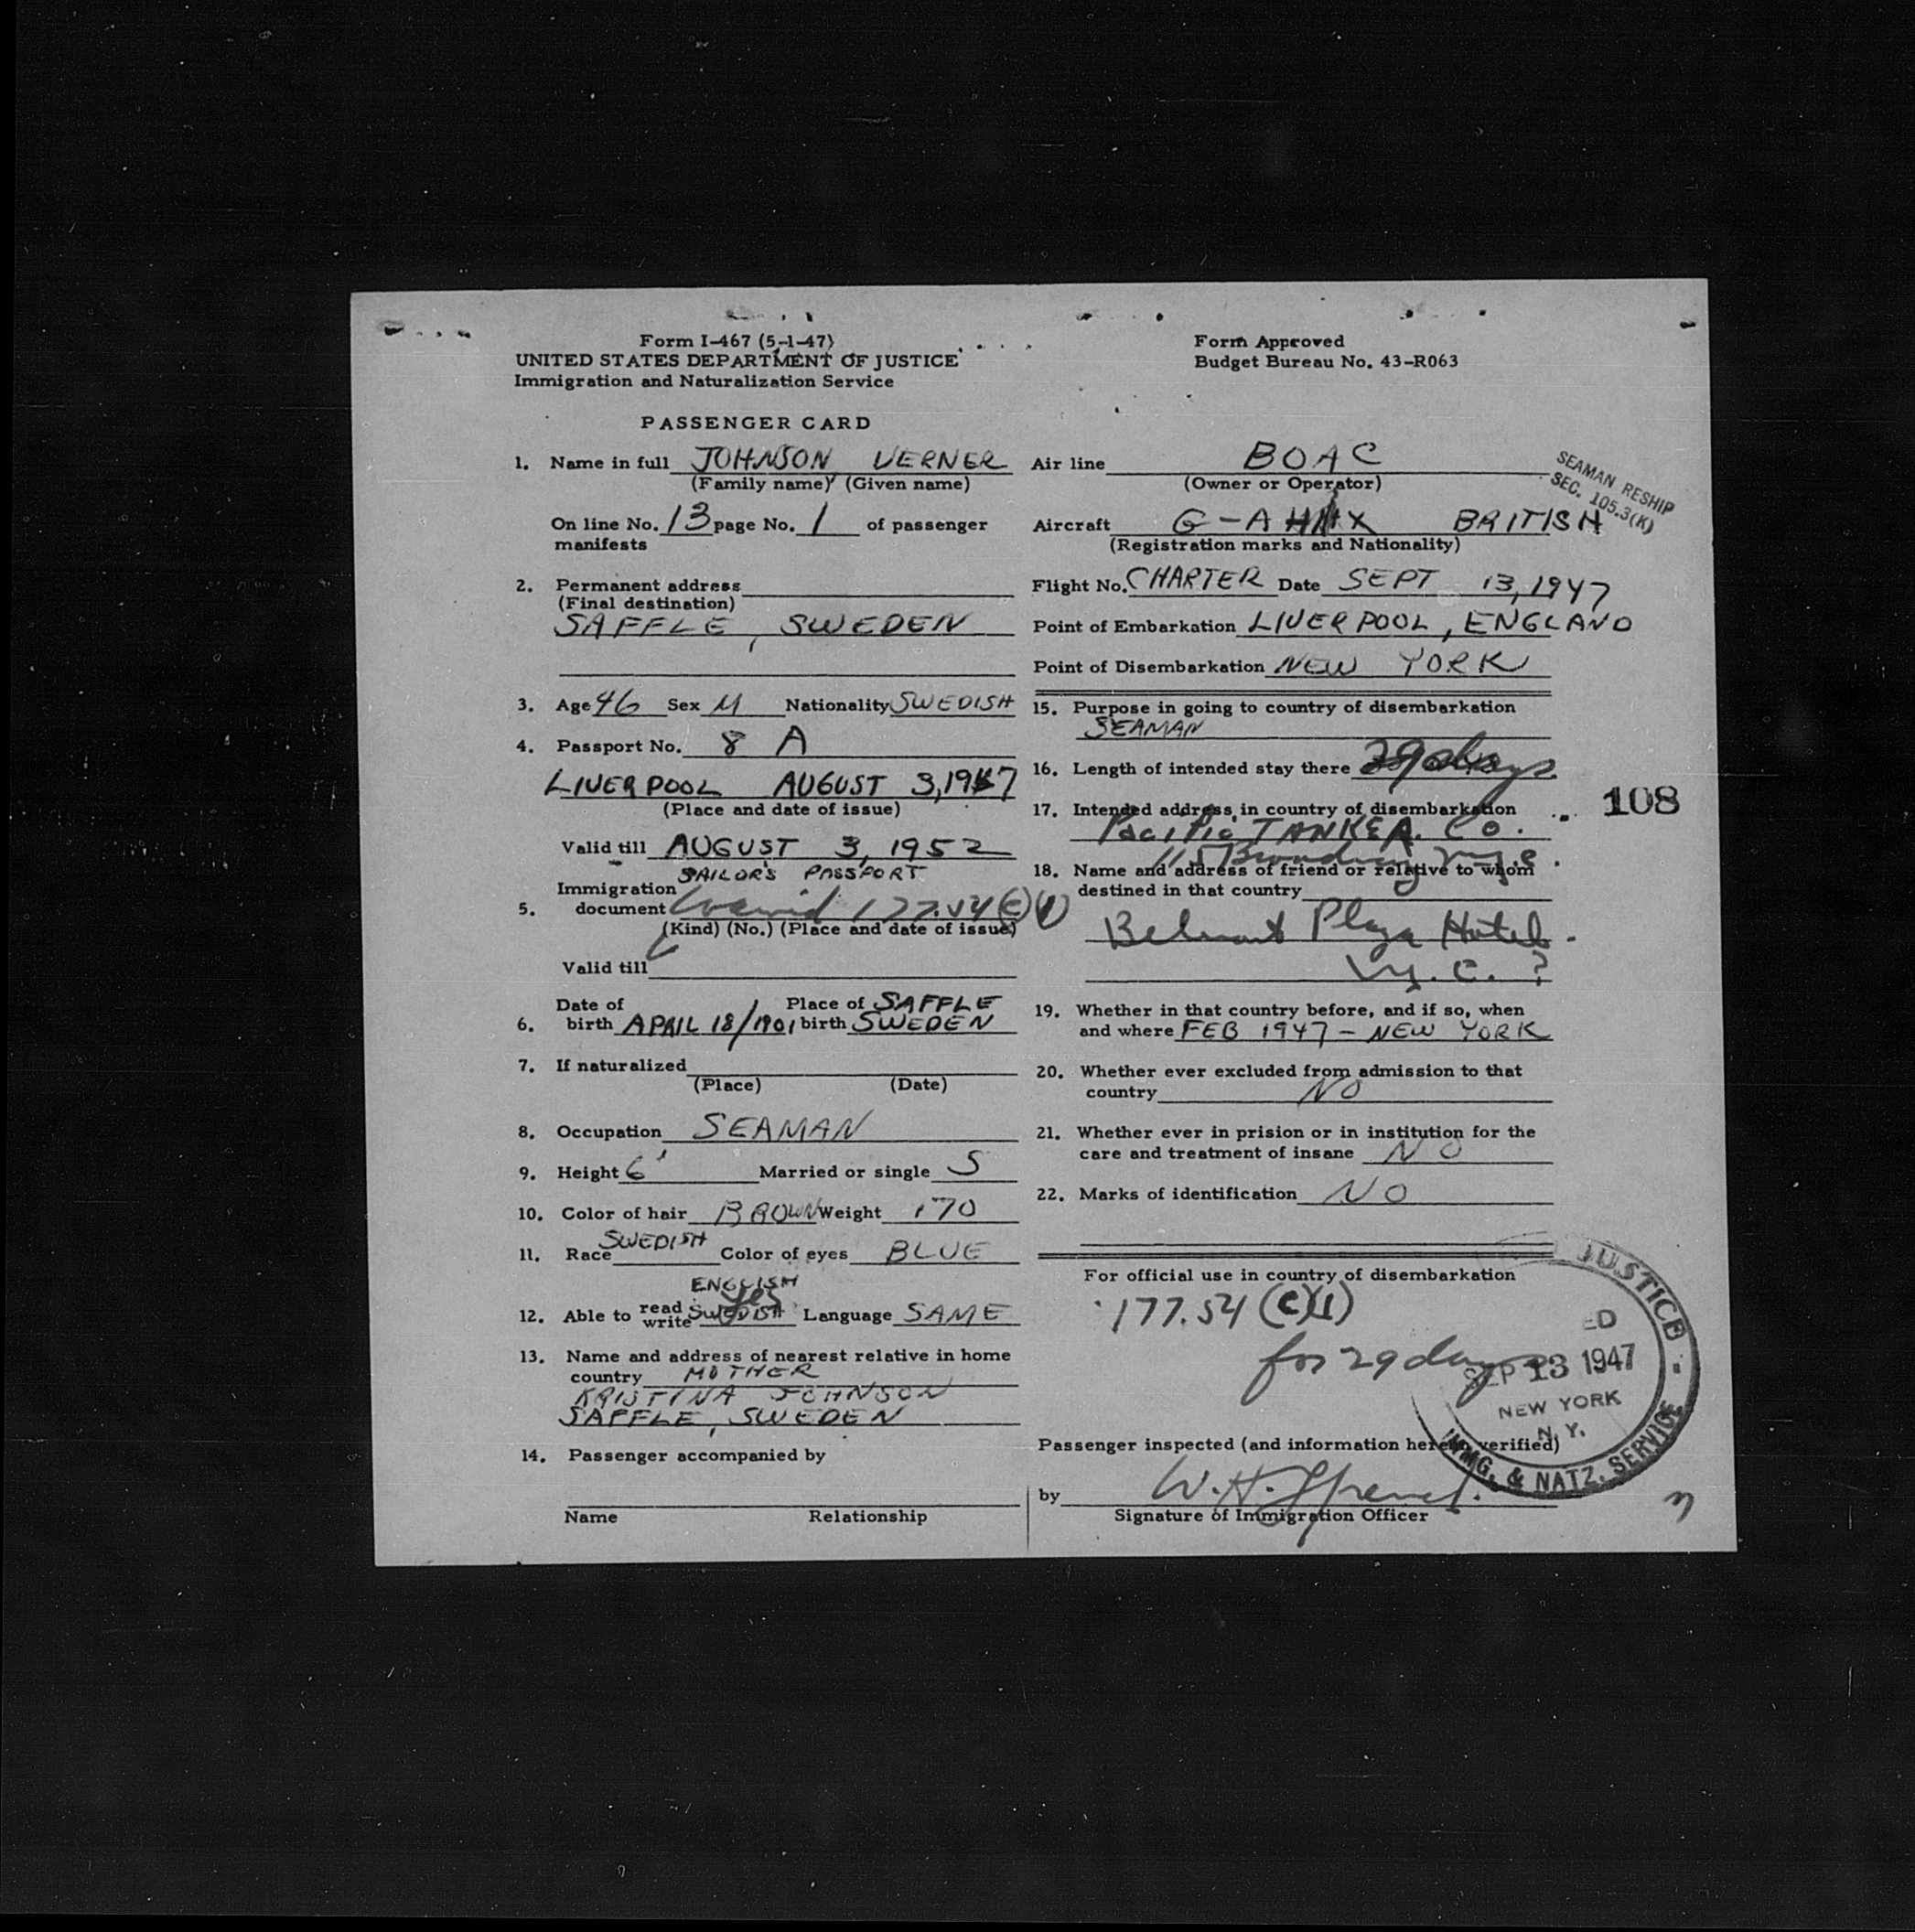 Form I-467 (5-1-47)
UNITED STATES DEPARTMENT OF JUSTICE
Immigration and Naturalization Service
Form Approved
Budget Bureau No. 43-R063
PASSENGER CARD
1. Name in full JOHNSON, VERNER
(Family name) (Given name)
On line No. 13 page No. 1 of passenger
manifests
2. Permanent address
(Final destination)
SAFFLE, SWEDEN
3. Age 46 Sex M Nationality SWEDISH
4. Passport No. 8 A
LIVERPOOL AUGUST 3, 1947
(Place and date of issue)
Valid till AUGUST 3, 1952
SAILOR'S PASSPORT
Immigration
5. document 177.54 (c)(1)
(Kind) (No.) (Place and date of issue)
Valid till
Date of Place of SAFFLE
6. birth APRIL 18/1901 birth SWEDEN
7. If naturalized
(Place) (Date)
8. Occupation SEAMAN
9. Height 6' Married or single S
10. Color of hair BROWN Weight 170
11. Race SWEDISH Color of eyes BLUE
ENGLISH
yes
12. Able to read write SWEDISH Language SAME
13. Name and address of nearest relative in home
country MOTHER
KRISTINA JOHNSON
SAFFLE, SWEDEN
14. Passenger accompanied by
Name Relationship
Air line BOAC
(Owner or Operator)
SEAMAN RESHIP
SEC. 105.3(K)
Aircraft BRITISH
(Registration marks and Nationality)
Flight No. CHARTER Date SEPT 13, 1947
Point of Embarkation LIVERPOOL, ENGLAND
Point of Disembarkation NEW YORK
15. Purpose in going to country of disembarkation
SEAMAN
16. Length of intended stay there 29 days
17. Intended address in country of disembarkation
108
Pacific TANKER Co.
Broadway
18. Name and address of friend or relative to whom
destined in that country
Belmont Plaza Hotel.
N.Y.C. ?
19. Whether in that country before, and if so, when
and where FEB 1947 - NEW YORK
20. Whether ever excluded from admission to that
country NO
21. Whether ever in prision or in institution for the
care and treatment of insane NO
22. Marks of identification NO
For official use in country of disembarkation
177.54 (c)(1)
for 29 days
JUSTICE
ED
SEP 13 1947
NEW YORK
N.Y.
IMMG. & NATZ. SERVICE
Passenger inspected (and information herein verified)
by W.H.
Signature of Immigration Officer